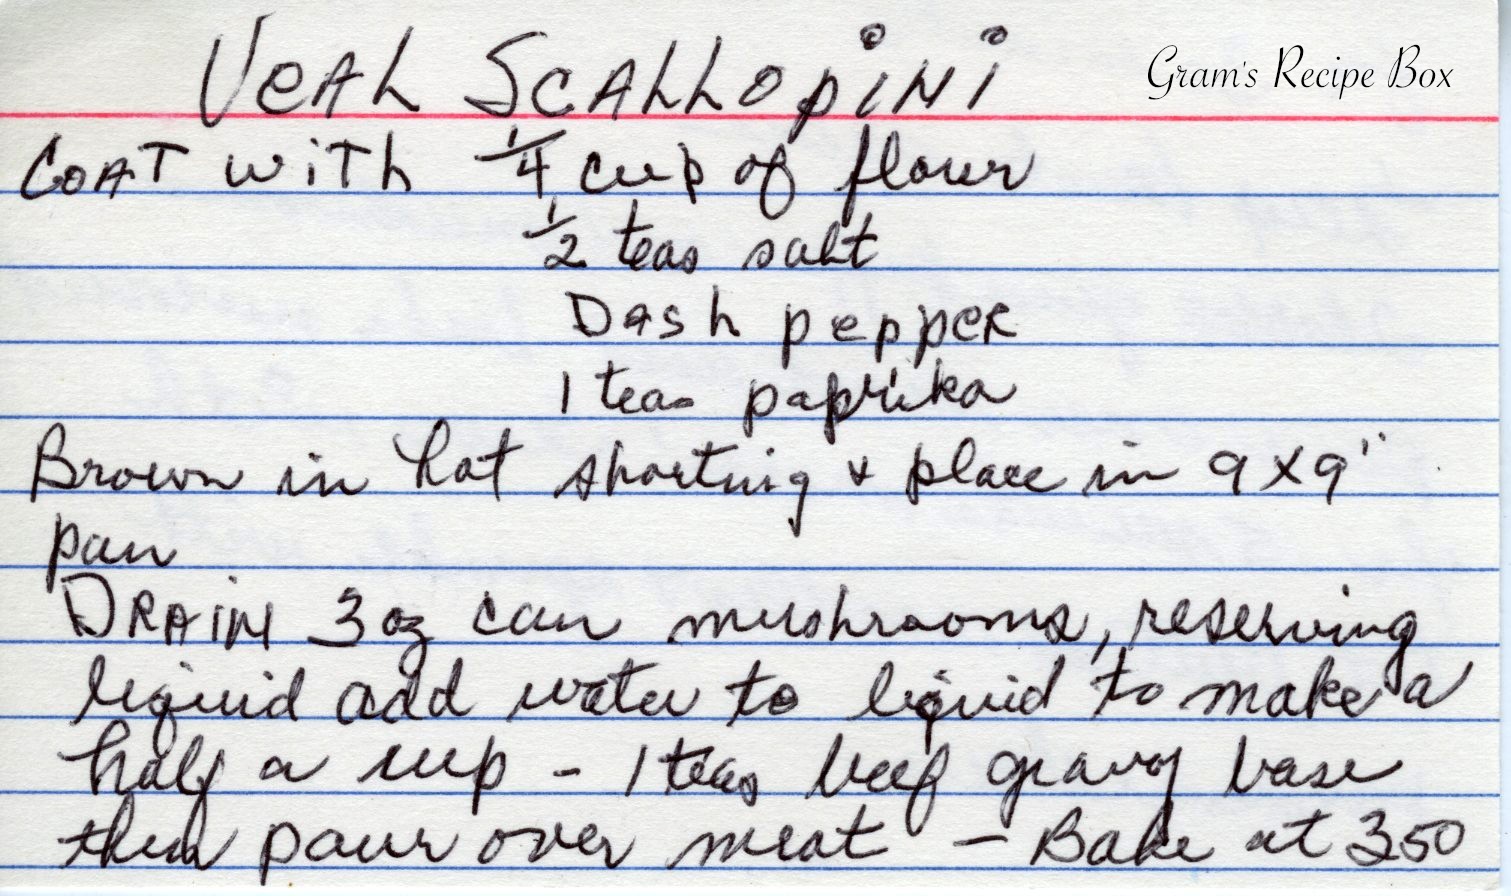 Veal Scallopini
Gram's Recipe Box
Coat with 1/4 cup of flour
1/2 teas salt
Dash pepper
1 teas paprika
Brown in hot shortnig & place in 9 X 9"
pan
Drain 3 oz can mushrooms, reserving
liquid add water to liquid to make a
half a cup - 1 teas beef gravy base
then pour over meat - Bake at 350